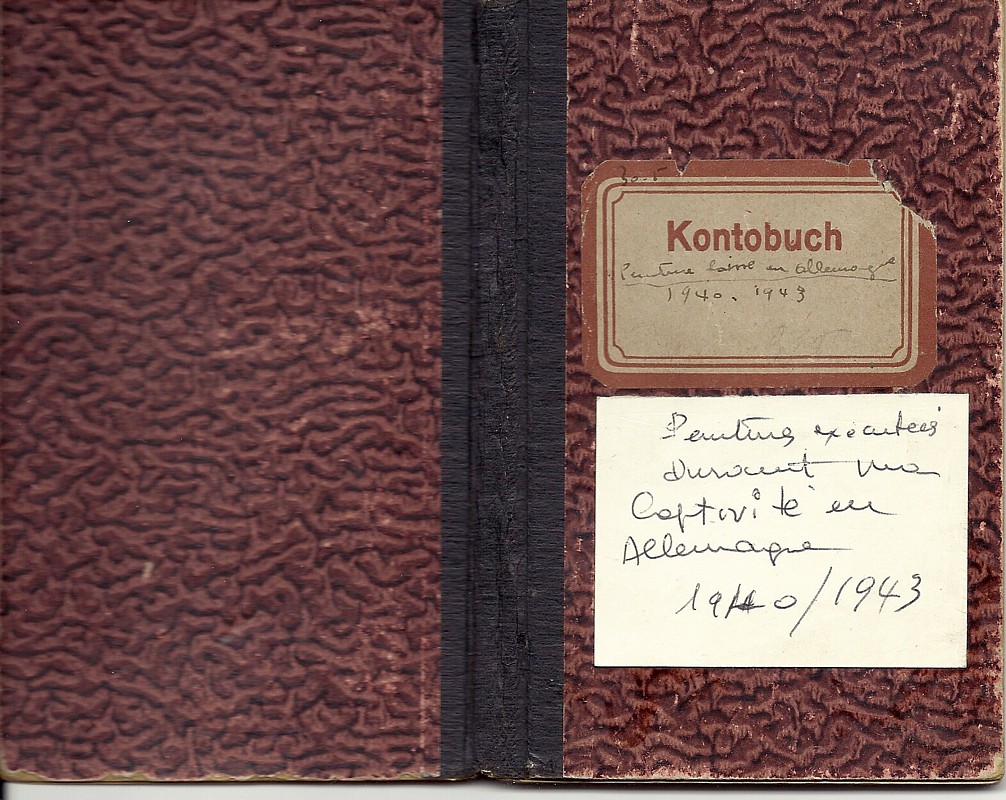 Kontobuch
Peinture laissé en Allemagne
1940. 1943
Peintures exécutées
durant ma
Captivité en
Allemagne
1940/1943